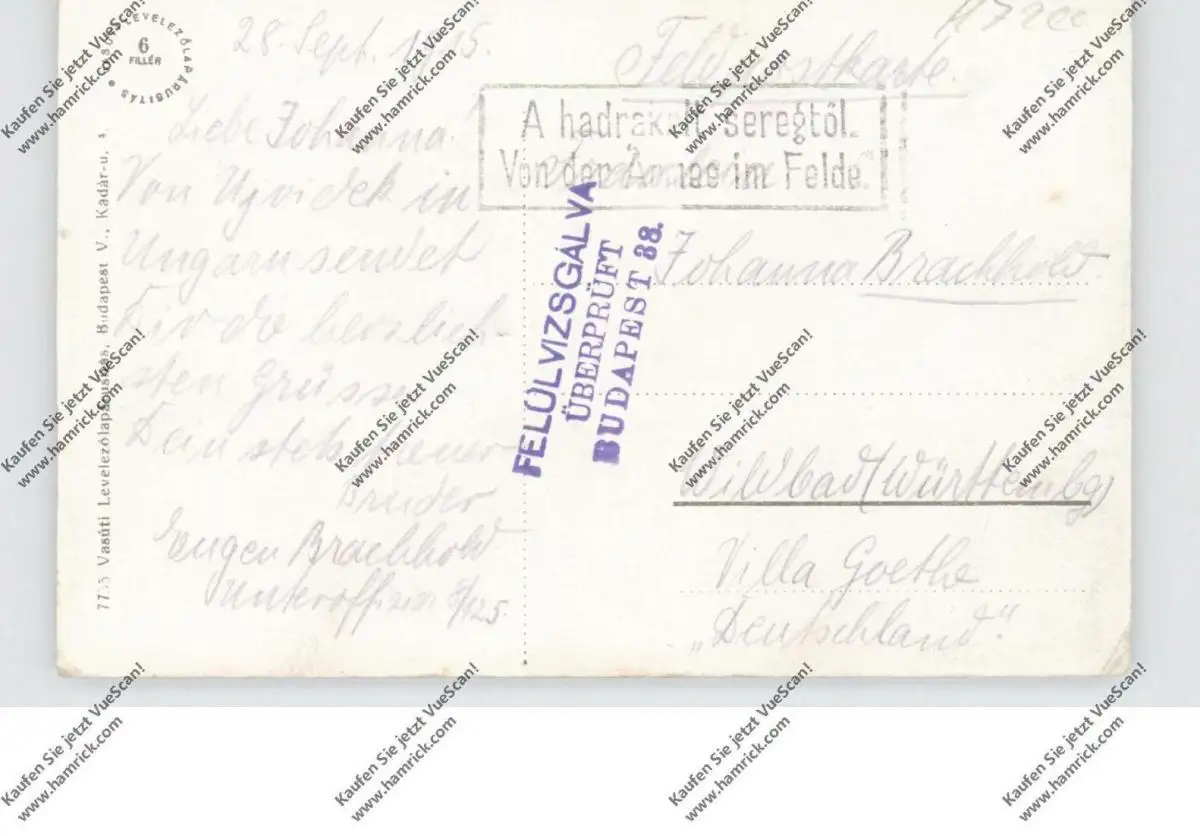 VASÚTI LEVELEZŐLAPÁRUSITÁS
6
FILLÉR
28. Sept. 1915.
Feldpostkarte.
A hadrakelt seregtől.
Von der Armee im Felde.
Liebe Johanna!
Von Ujvidek in
Ungarn sendet
Dir die herzlich-
sten Grüsse
Dein stets treuer
Bruder
Eugen Brachhold
Unteroffizier 8/125.
FELÜLVIZSGÁLVA
ÜBERPRÜFT
BUDAPEST 38.
Johanna Brachhold
Wildbad (Württembg)
Villa Goethe
„Deutschland."
Vasúti Levelezőlapárusitás, Budapest V., Kádár-u.
Kaufen Sie jetzt VueScan!
www.hamrick.com
Kaufen Sie jetzt VueScan!
www.hamrick.com
Kaufen Sie jetzt VueScan!
www.hamrick.com
Kaufen Sie jetzt VueScan!
www.hamrick.com
Kaufen Sie jetzt VueScan!
www.hamrick.com
Kaufen Sie jetzt VueScan!
www.hamrick.com
Kaufen Sie jetzt VueScan!
www.hamrick.com
Kaufen Sie jetzt VueScan!
www.hamrick.com
Kaufen Sie jetzt VueScan!
www.hamrick.com
Kaufen Sie jetzt VueScan!
www.hamrick.com
Kaufen Sie jetzt VueScan!
www.hamrick.com
Kaufen Sie jetzt VueScan!
www.hamrick.com